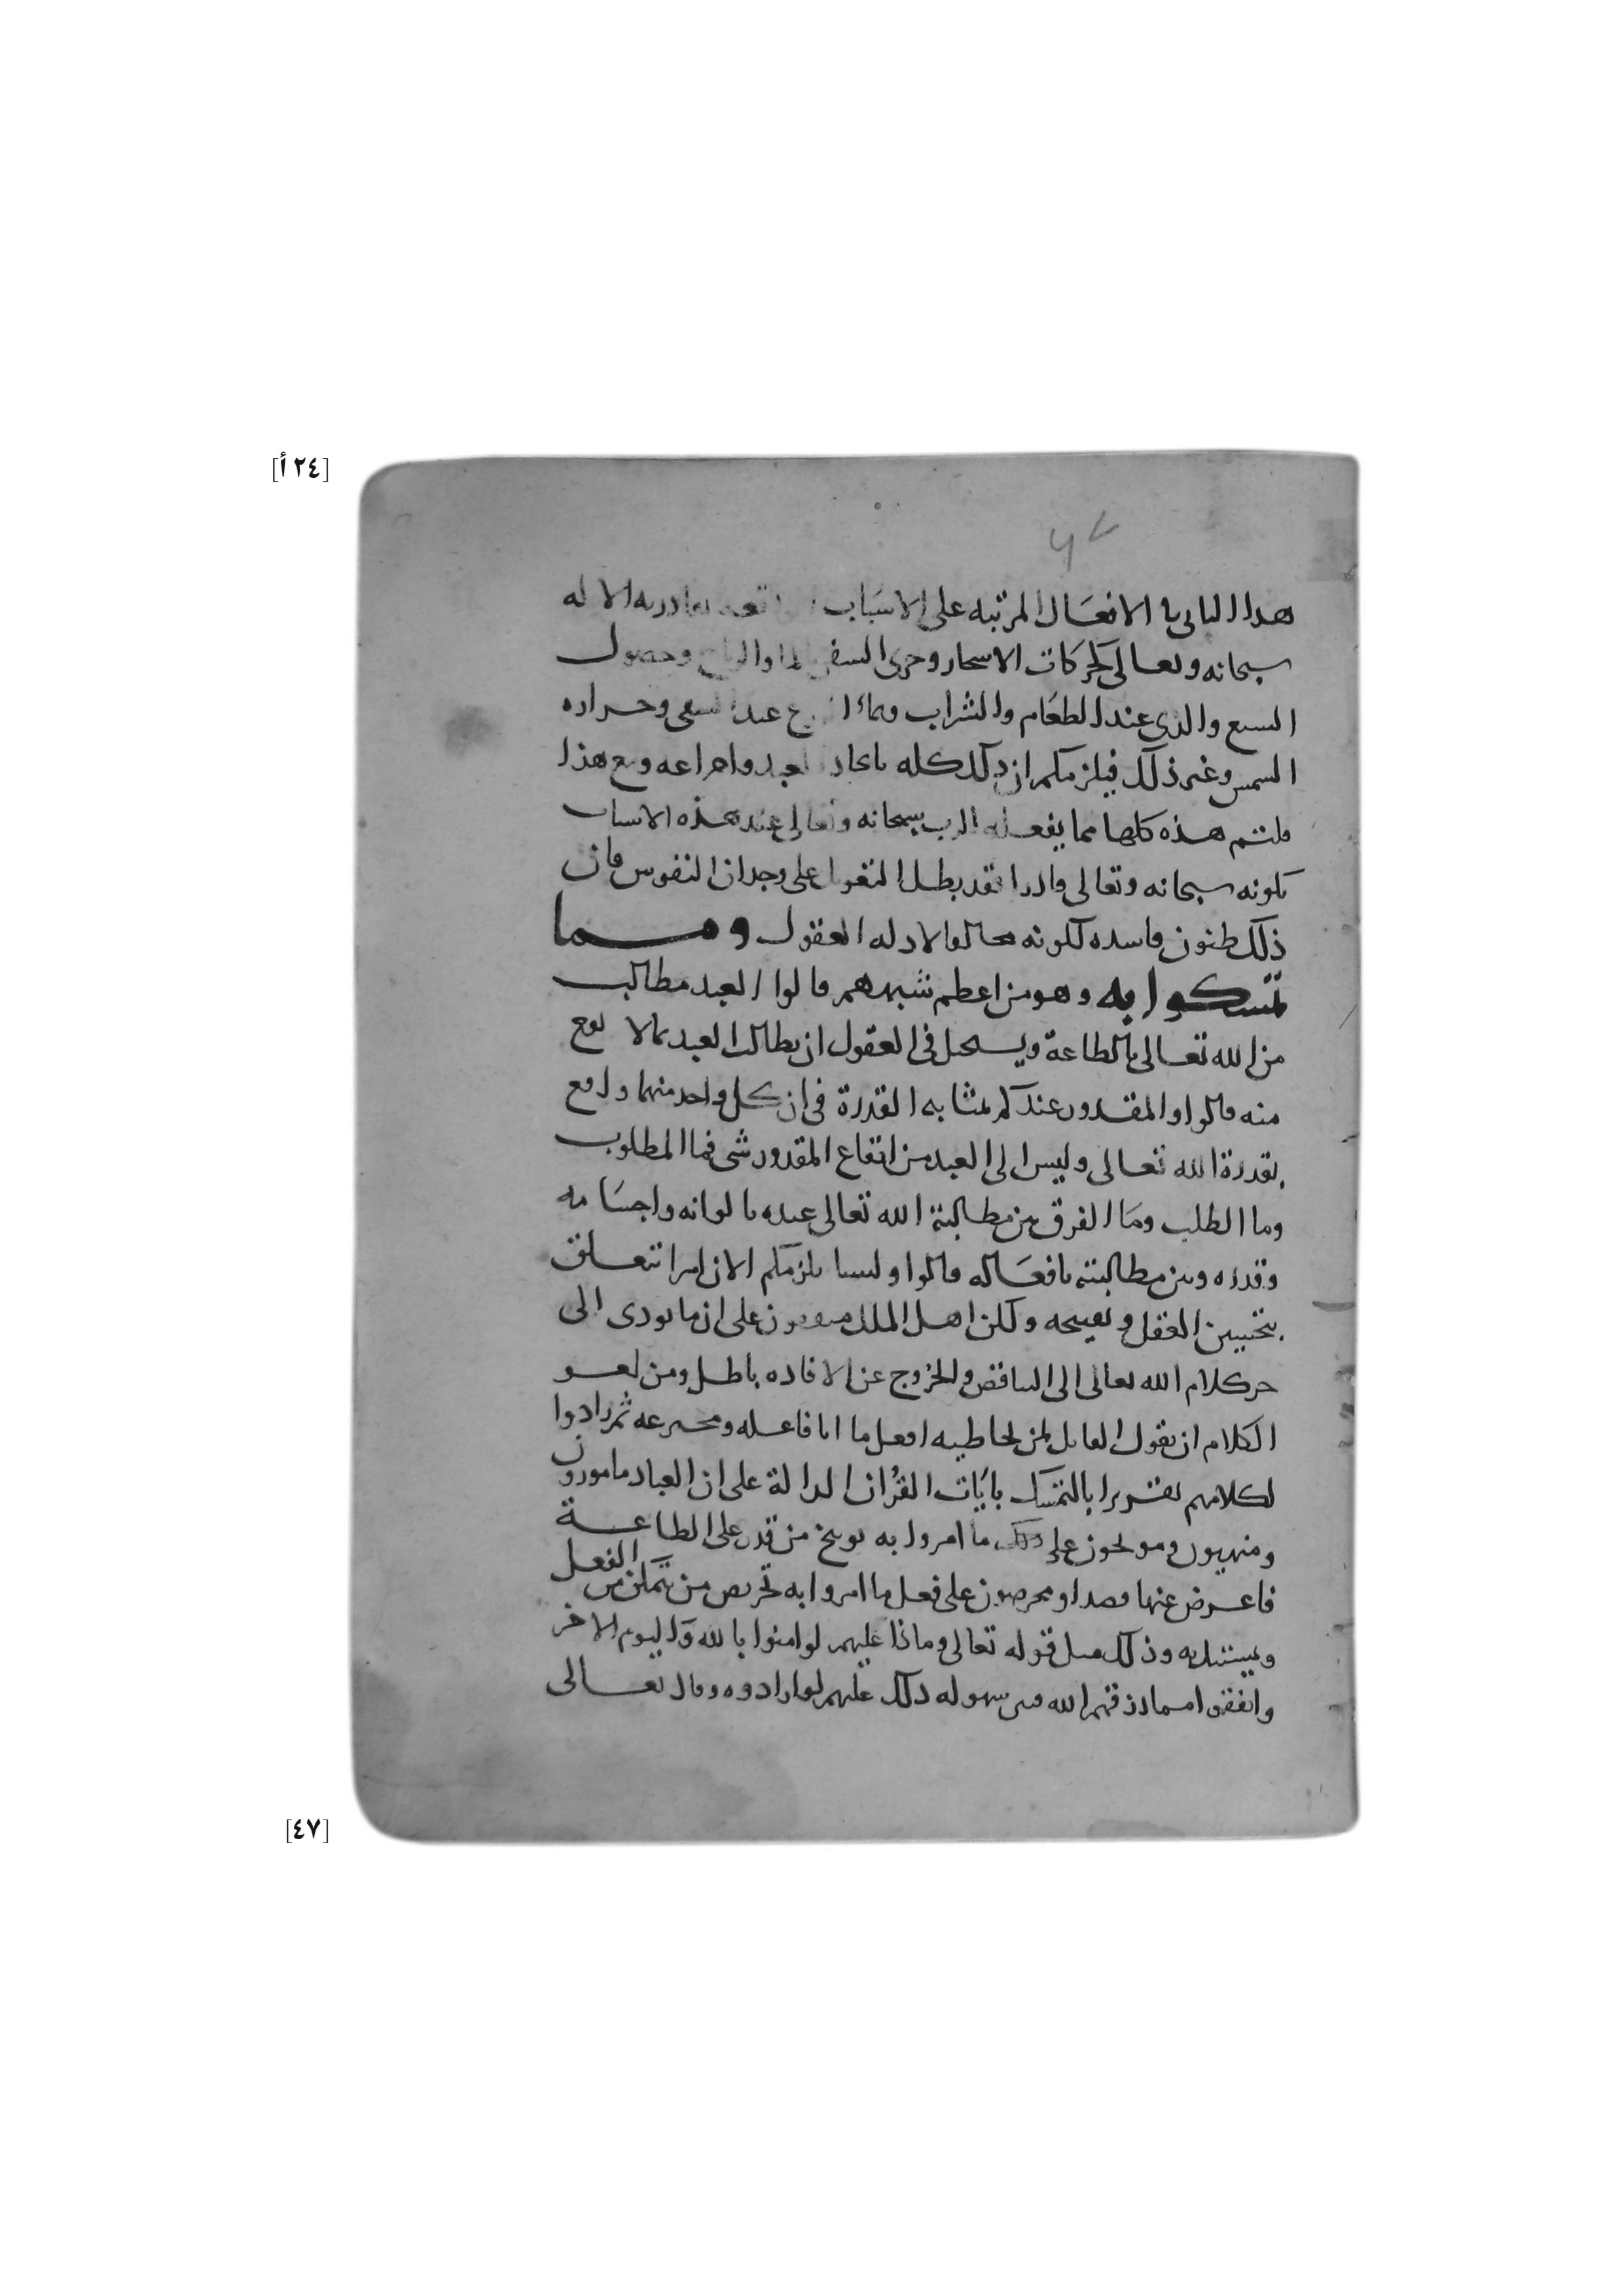 [٢٤ أ]
٤٧
هذا الباب با الافعَال المرتبه على الاسبَاب الاله
سبحانه وتعالى كحركات الاسحار وجرى السفن وحصول
السبع والرى عند الطعَام والشراب ونماء الزرع عند السقى وحراره
الشمس وغير ذلك فيلزمكم ان ذلك كله بايجاد العبد واختراعه ومع هذا
قلتم هذه كلها مما يفعله الرب سبحانه وتعالى عند هذه الاسباب
لكونه سبحانه وتعالى قادرا فقد بطل التعويل على وجدان النفوس فان
ذلك ظنون فاسده لكونه مخالفا لادله العقول ومـــما
تمسكوا به وهو من اعظم شبههم قالوا العبد مطالب
من الله تعالى بالطاعة ويستحيل فى العقول ان يطالب العبد بما لا يقع
منه قالوا والمقدور عندكم بمثابه القدرة فى ان كل واحد منهما واقع
بقدرة الله تعالى وليس الى العبد من ايقاع المقدور شى فما المطلوب
وما الطلب ومَا الفرق بين مطالبة الله تعالى عبده بالوانه واجسَامه
وقدره وبين مطالبته بافعَاله قالوا ولسنا نلزمكم الان امرا تتعلق
بتحسين العقل وتقبيحه ولكن اهل الملل متفقون على ان ما يودى الى
كلام الله تعالى الى التناقض والخروج عن الافاده باطل ومن لغو
الكلام ان يقول القايل لمن يخاطبه افعل ما انا فاعله ومخترعه ثم زادوا
لكلامهم تقريرا بالتمسك بايَات القرْان الدالة على ان العباد مامورون
ومنهيون وموبخون على ترك ما امروا به توبيخ من قدر على الطاعة
فاعرض عنها قصدا ومحرضون على فعل ما امروا به تحريض من يتمكن من الفعل
ويستبد به وذلك مثل قوله تعالى وماذا عليهم لو امنوا بالله وَاليوم الاخر
وانفقوا مما رزقهم الله فبين سهوله ذلك عليهم لو ارادوه وقال تعالى
[٤٧]